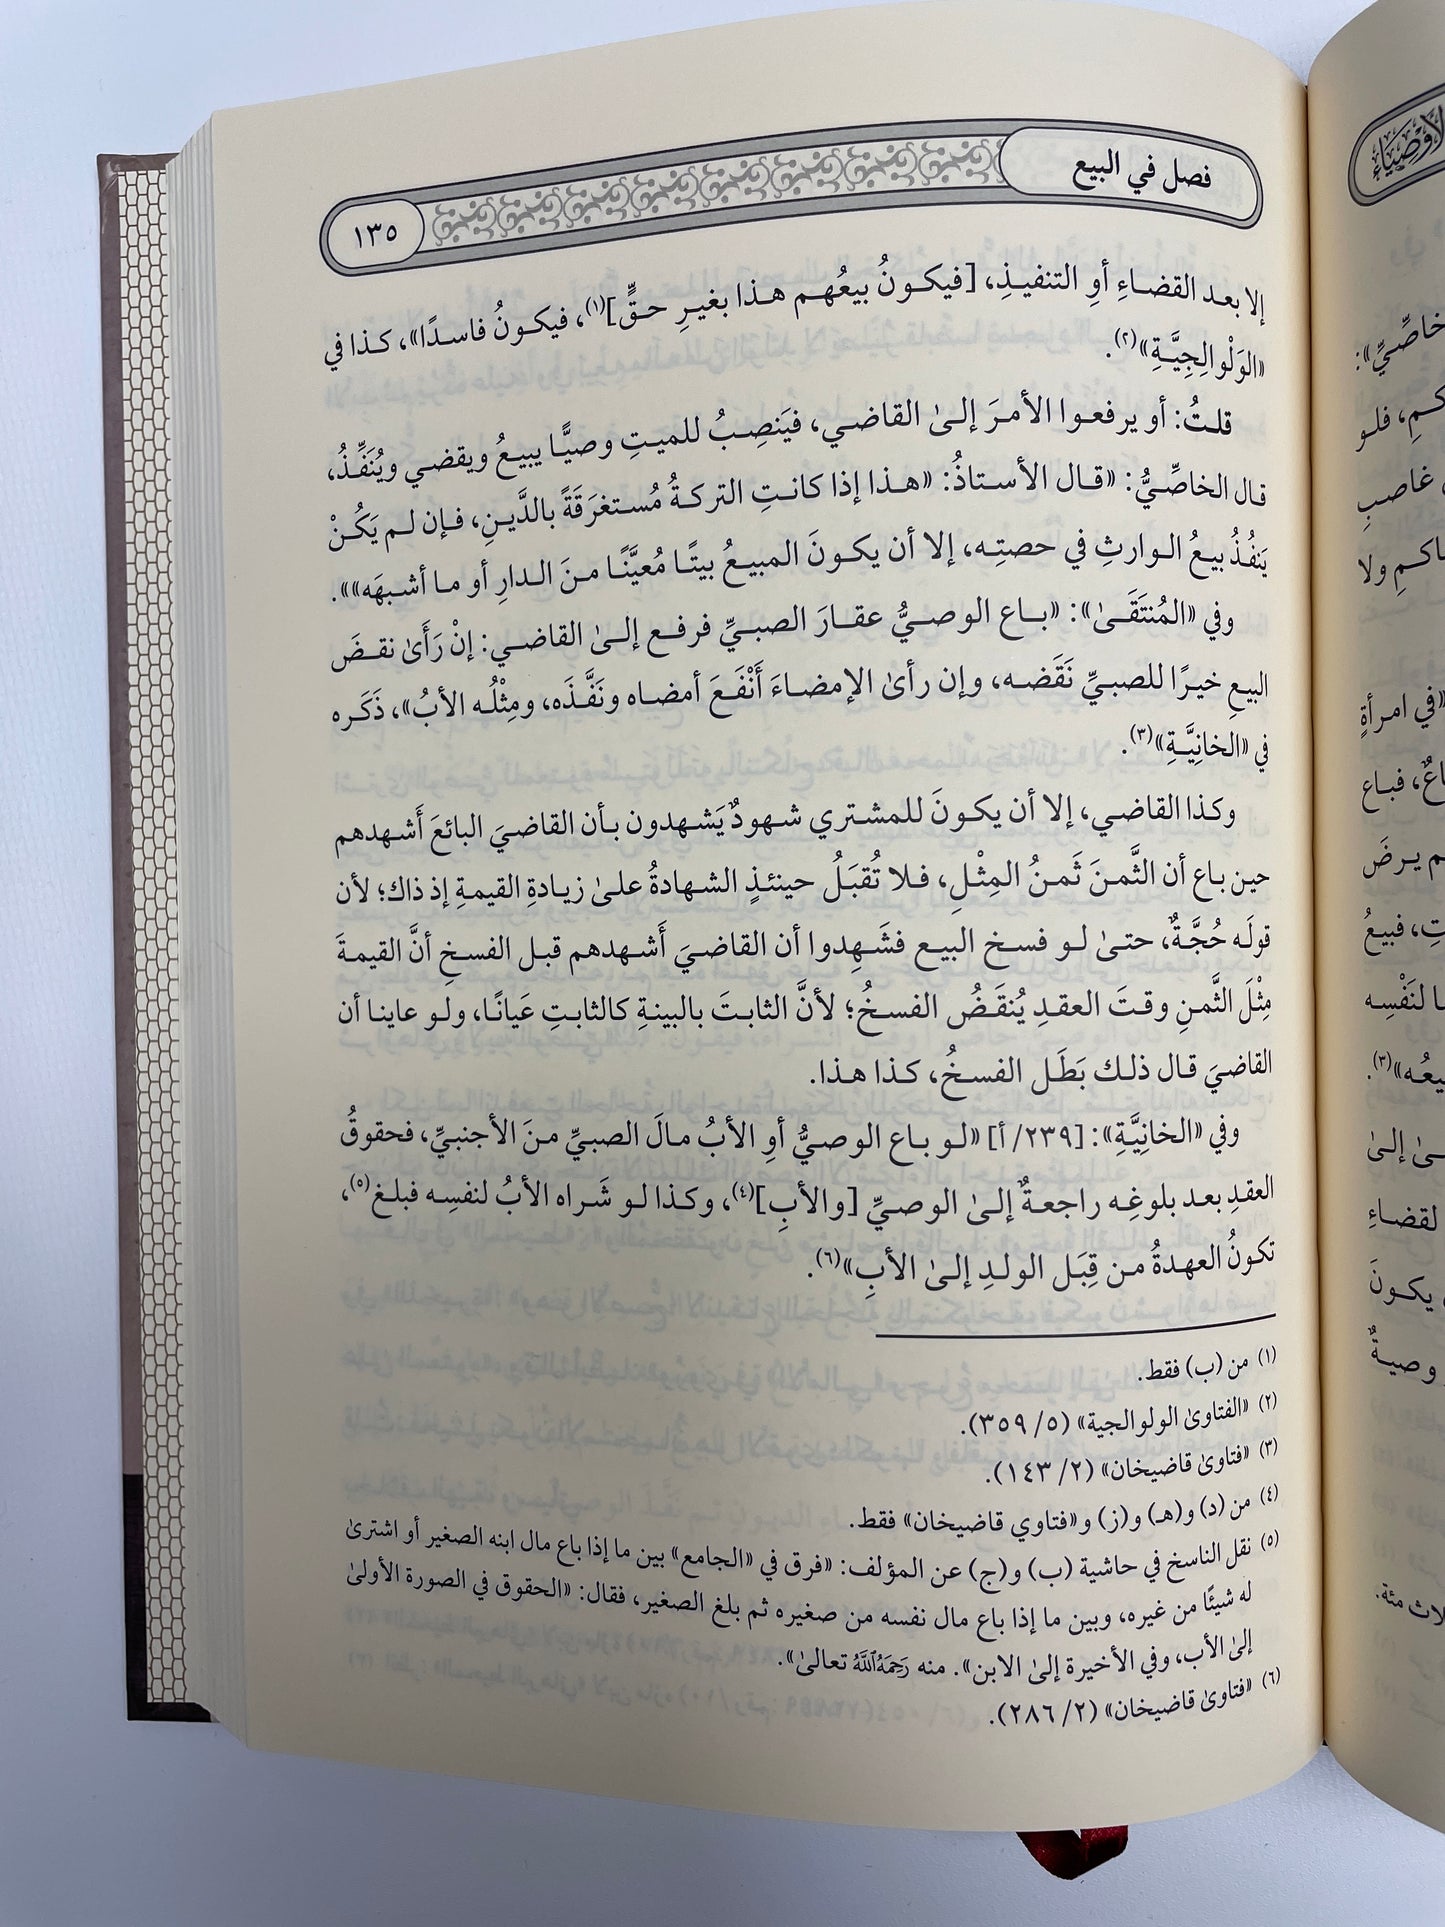 فصل في البيع
١٣٥
إلا بعد القضاءِ أوِ التنفيذِ، [فيكونُ بيعُهم هذا بغيرِ حقٍّ](١)، فيكونُ فاسدًا»، كذا في
«الوَلْوالِجِيَّةِ»(٢).
قلتُ: أو يرفعوا الأمرَ إلىٰ القاضي، فيَنصِبُ للميتِ وصيًّا يبيعُ ويقضي ويُنَفِّذُ،
قال الخاصِّيُّ: «قال الأستاذُ: «هذا إذا كانتِ التركةُ مُستغرَقَةً بالدَّينِ، فإن لم يَكُنْ
يَنفُذُ بيعُ الوارثِ في حصتِه، إلا أن يكونَ المبيعُ بيتًا مُعيَّنًا منَ الدارِ أو ما أشبهَه»».
وفي «المُنتَقَىٰ»: «باع الوصيُّ عقارَ الصبيِّ فرفع إلىٰ القاضي: إنْ رَأَىٰ نقضَ
البيعِ خيرًا للصبيِّ نَقَضه، وإن رأىٰ الإمضاءَ أَنْفَعَ أمضاه ونَفَّذَه، ومِثْلُه الأبُ»، ذَكَره
في «الخانِيَّةِ»(٣).
وكذا القاضي، إلا أن يكونَ للمشتري شهودٌ يَشهدون بأن القاضيَ البائعَ أَشهدهم
حين باع أن الثَّمنَ ثَمنُ المِثْلِ، فلا تُقبَلُ حينئذٍ الشهادةُ علىٰ زيادةِ القيمةِ إذ ذاك؛ لأن
قولَه حُجَّةٌ، حتىٰ لو فسخ البيع فشَهِدوا أن القاضيَ أَشهدهم قبل الفسخِ أنَّ القيمةَ
مِثْلَ الثَّمنِ وقتَ العقدِ يُنقَضُ الفسخُ؛ لأنَّ الثابتَ بالبينةِ كالثابتِ عَيانًا، ولو عاينا أن
القاضيَ قال ذلك بَطَل الفسخُ، كذا هذا.
وفي «الخانِيَّةِ»: [٢٣٩/ أ] «لو باع الوصيُّ أوِ الأبُ مالَ الصبيِّ منَ الأجنبيِّ، فحقوقُ
العقدِ بعد بلوغِه راجعةٌ إلىٰ الوصيِّ [والأبِ](٤)، وكذا لو شَراه الأبُ لنفسِه فبلغ(٥)،
تكونُ العهدةُ من قِبَل الولدِ إلىٰ الأبِ»(٦).
(١) من (ب) فقط.
(٢) «الفتاوىٰ الولوالجية» (٥/ ٣٥٩).
(٣) «فتاوىٰ قاضيخان» (٢/ ١٤٣).
(٤) من (د) و(هـ) و(ز) و«فتاوي قاضيخان» فقط.
(٥) نقل الناسخ في حاشية (ب) و(ج) عن المؤلف: «فرق في «الجامع» بين ما إذا باع مال ابنه الصغير أو اشترىٰ
له شيئًا من غيره، وبين ما إذا باع مال نفسه من صغيره ثم بلغ الصغير، فقال: «الحقوق في الصورة الأولىٰ
إلىٰ الأب، وفي الأخيرة إلىٰ الابن». منه رَحِمَهُ ٱللَّهُ تعالىٰ».
(٦) «فتاوىٰ قاضيخان» (٢/ ٢٨٦).